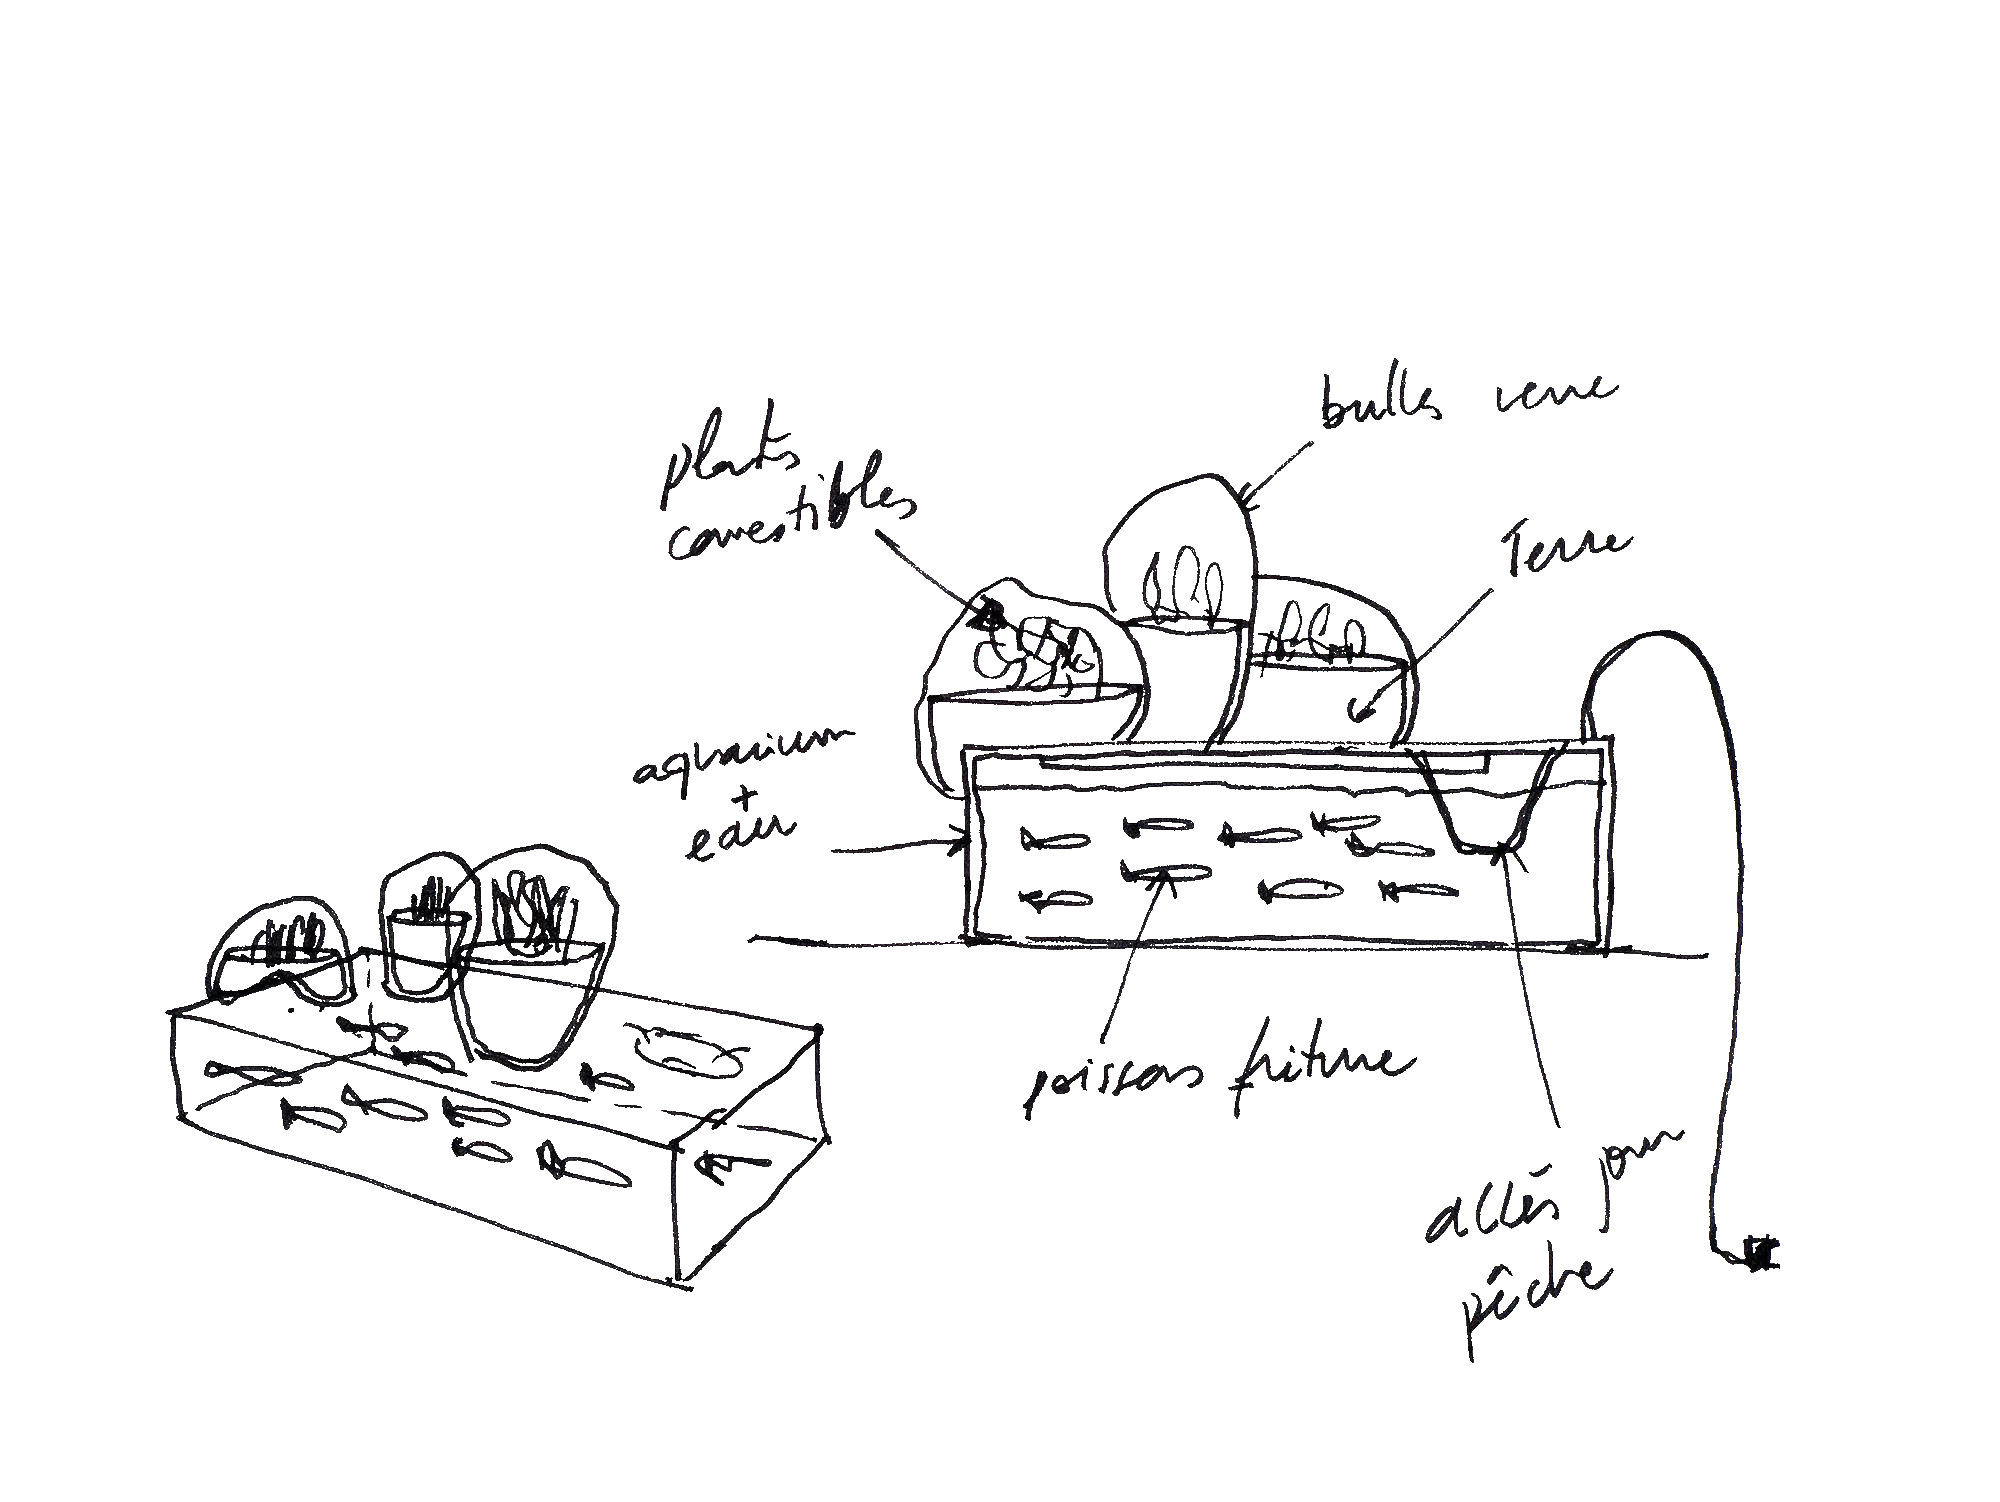 bulles verre
plants
comestibles
Terre
aquarium
+
eau
poissons friture
accès pour
pêche